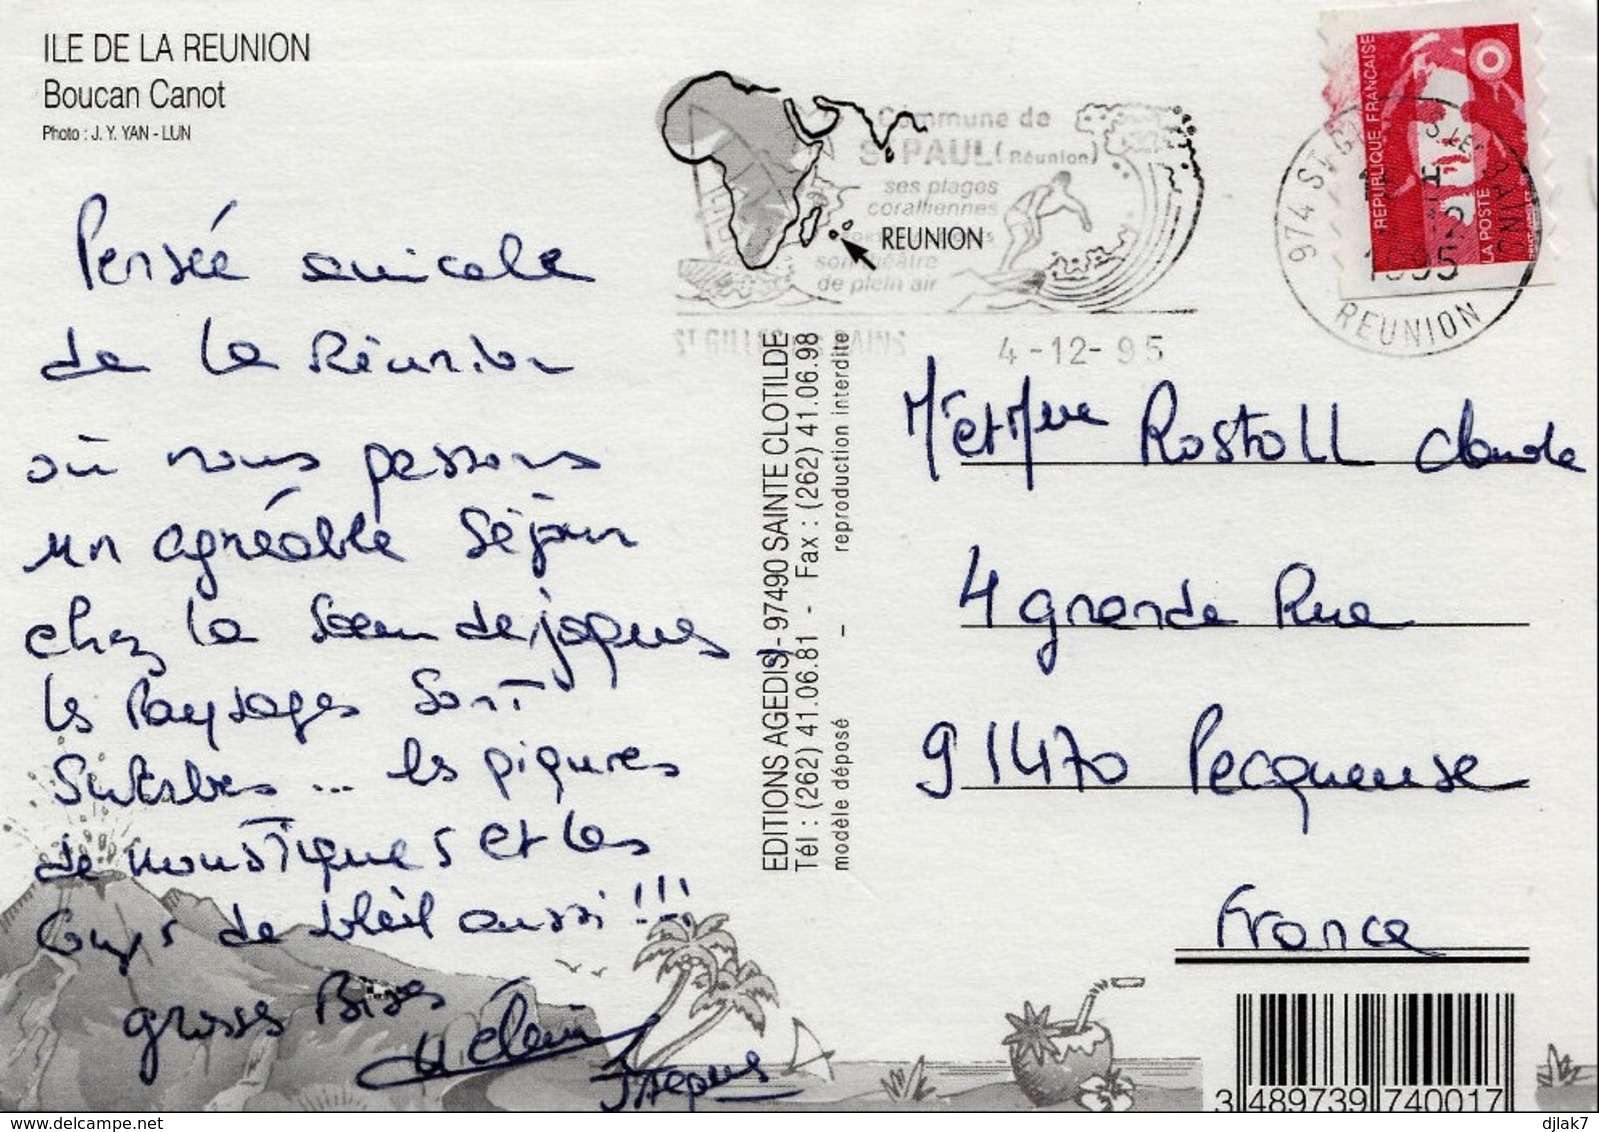 ILE DE LA REUNION
Boucan Canot
Photo : J. Y. YAN - LUN
Pensée amicale
de la Réunion
où nous passons
un agréable séjour
chez la soeur de jacques
les Paysages sont
Superbes ... les piqures
de moustiques et les
Coups de soleil aussi !!!
grosses Bises
Jacques
Commune de
St PAUL (Réunion)
ses plages
coralliennes
REUNION
son théâtre
de plein air
ST GILLES LES BAINS
4-12-95
REPUBLIQUE FRANÇAISE
LA POSTE
974 ST
1995
REUNION
EDITIONS AGEDIS - 97490 SAINTE CLOTILDE
Tél : (262) 41.06.81 - Fax : (262) 41.06.98
modèle déposé – reproduction interdite
Mr et Mme Rostoll Claude
4 grande Rue
91470 Pecqueuse
France
3 489739 740017
djlak7